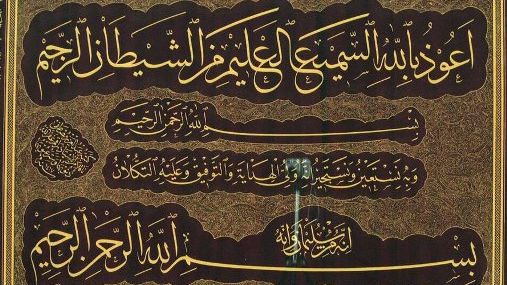 اعوذ بالله السميع العليم من الشيطان الرجيم
بسم الله الرحمن الرحيم
وبه نستعين ونستجير له ولي الهداية والتوفيق وعليه التكلان
انه من سليمان وانه
بسم الله الرحمن الرحيم